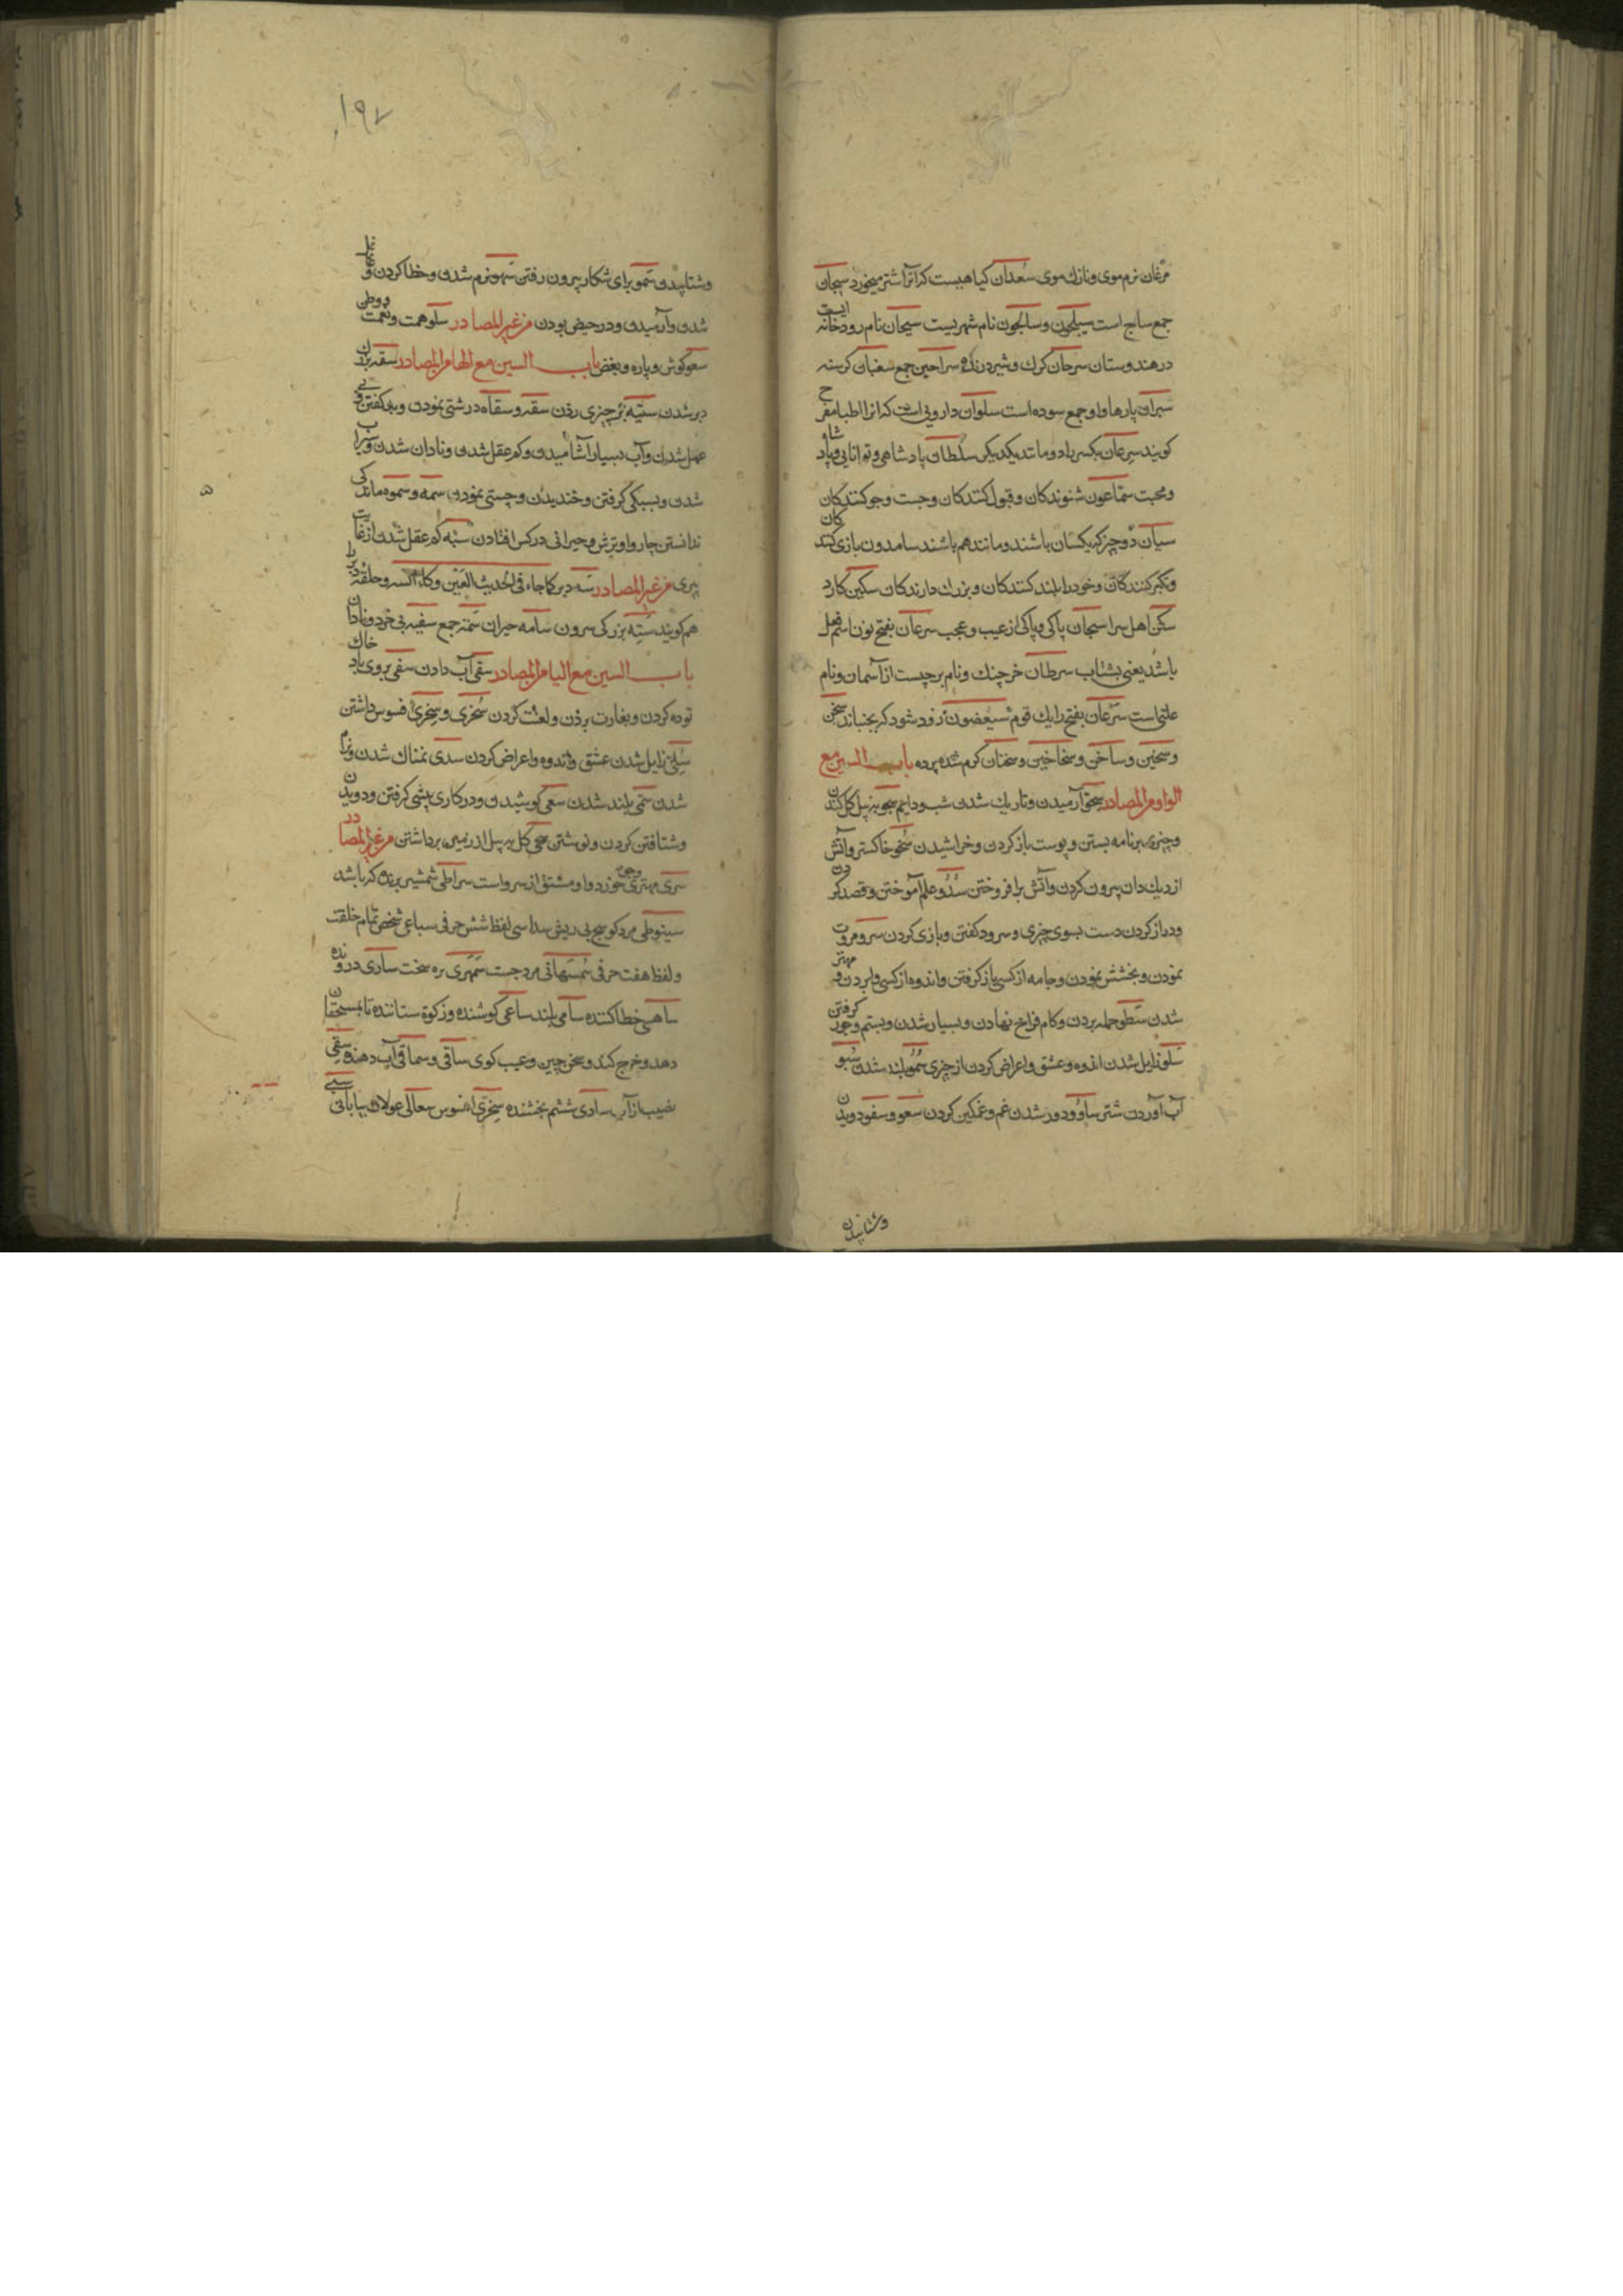 مرغان نرم موی و نازك موی سعدان کیاهیست که آنرا اشتر میخورد سیجان
جمع ساج است سیلحون و سالحون نام شهریست سیحان نام رودخانه ایست
در هندوستان سرحان کرك و شیر درنده سراحین جمع سغبان کرسنه
سیران پارها واو جمع سوده است سلوان دارویی است که انرا اطبا مفرح
کویند سرعان بکسر باد و مانند یکدیکر سلطان پادشاهی و توانایی و پادشاه
و محبت سماعون شنوندکان و قبول کنندکان و جست و جو کنندکان
سیان دو چیز که یکسان باشند و مانند هم باشند سامدون بازی کنندکان
و تکبر کنندکان و خود را بلند کنندکان و بزرك دارندکان سکین کارد
سکن اهل سرا سبحان پاکی و پاکی از عیب و عجب سرعان بفتح نون اسم فعل
باشد یعنی بشتاب سرطان خرچنك و نام برجیست از آسمان و نام
علتی است سرعان بفتح را یك قوم سیغضون زود شود که بجنباند سخن
و سخین و ساخن و سخاخین و سخنان کرم شده پرده باب السین مع
الواو من المصادر سجو آرمیدن و تاریك شدن شب و دایم سحو به بیل کل کندن
و چیزی بر نامه بستن و پوست باز کردن و خراشیدن سخو خاکستر و آتش
از دیك دان بیرون کردن و آتش برافروختن سدو علم آموختن و قصد کردن
و دراز کردن دست بسوی چیزی و سرود کفتن و بازی کردن سرو مروت
نمودن و بخشش نمودن و جامه از کسی باز کرفتن و اندوه از کسی وا بردن و مهتر
شدن سطو حمله بردن و کام فراخ نهادن و بسیار شدن و بستم و جور کرفتن
سلو زایل شدن اندوه و عشق و اعراض کردن از چیزی سمو بلند شدن سنو
آب آوردن شتر ساو و دور شدن غم و غمکین کردن سعو و سفو دویدن
وشتابیدن
۱۹۷
و شتابیدن سمو برای شکار بیرون رفتن سهو نرم شدن و خطا کردن و غافل
شدن و آرمیدن و در حیض بودن من غیر المصادر سلو همت و نعمت و وطی
سعو کوش و پاره و بعض باب السین مع الها من المصادر سقه بزرك
دبر شدن ستیه بر چیزی زدن سقه و سقاه درشتی نمودن و بد کفتن و بی
عقل شدن و آب بسیار آشامیدن و کم عقل شدن و نادان شدن و سیراب
شدن و بسبکی کرفتن و خندیدن و چستی نمودن سمه و سموه ماندکی
ندانستن چاروا و ترش و حیرانی در کس افتادن سبه کم عقل شدن از غایت
پیری من غیر المصادر سه دبر کما جاء فی الحدیث العین وکاء السه و حلقه دبر را
هم کویند ستیه بزرك سرون سامه حیران سمه جمع سفیه بی خرد و نادان
باب السین مع الیا من المصادر سقی آب دادن سفی بروی باد خاك
توده کردن و بغارت بردن و لعنت کردن سخری و سخری فسوس داشتن
سلی زایل شدن عشق و اندوه و اعراض کردن سدی نمناك شدن و نرم
شدن سمی بلند شدن سعی کوشیدن و در کاری پیشی کرفتن و دویدن
و شتافتن کردن و نوشتن سحی کل به بیل از زمین برداشتن من غیر المصادر
سری مهتری و جوی خورد و او مشتق از سرو است سراطی شمشیر برنده که باشد
سینوطی مرد کوسج بی ریش سداسی لفظ شش حرفی سباعی شخص تمام خلقت
و لفظ هفت حرفی سمسهانی مرد جست سمهری بره سخت ساری در رونده
ساهی خطا کننده سامی بلند ساعی کوشنده و زکوة ستاننده تا بمستحقان
دهد و خرج کند و سخن چین و عیب کوی ساقی و سماقی آب دهنده سقی
نصیب از آب سادی ششم بخشنده سخری افسوس سعالی غولان بیابانی سبی